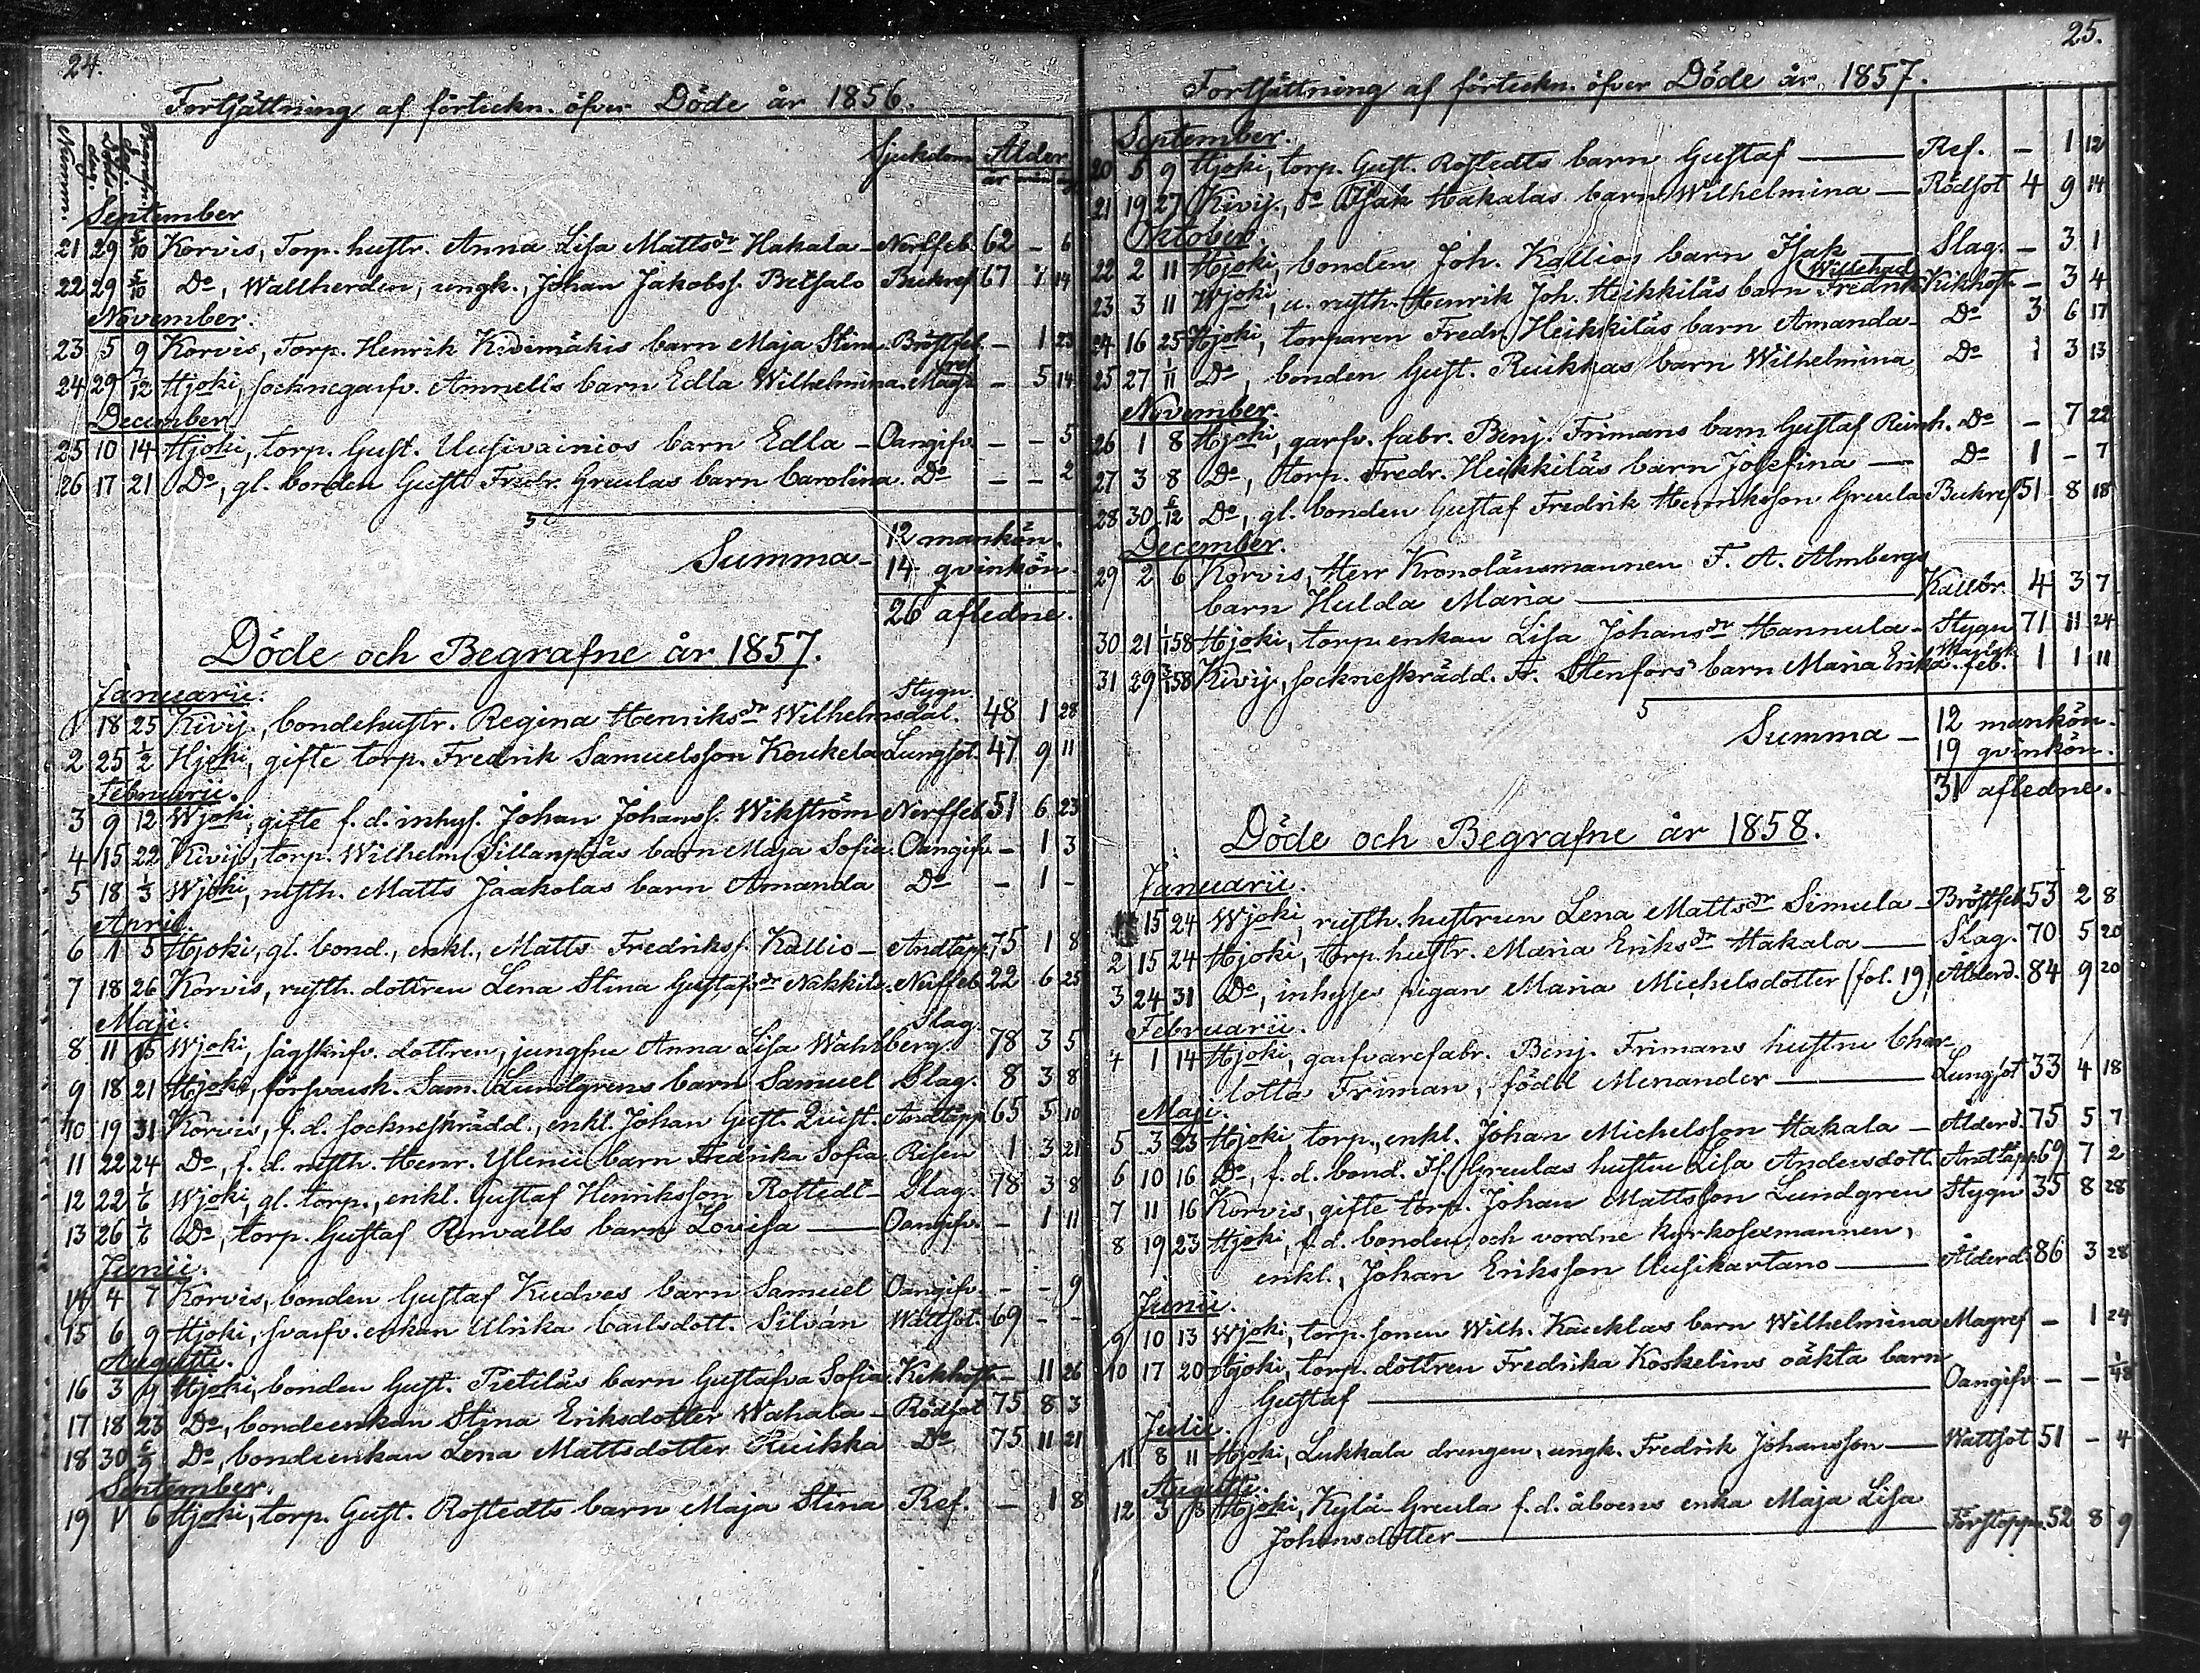 24.
Fortsättning af förteckn. öfver Döde år 1856.
Numm. Död. dag. Begrafn. Sjukdom Ålder
år mån
September
21 29 5/10 Korvis, Torp. hustr. Anna Lisa Mattsdr Hakala – Nerffeb. 62 – 6
22 29 5/10 Do, Wallherden, ungk., Johan Jakobs. Betsalo Bukref 67 7 14
November.
23 5 9 Korvis, Torp. Henrik Kivimäkis barn Maja Stina. Bröstfeb. – 1 23
24 29 7/12 Hjoki, socknegarfv. Amnells barn Edla Wilhelmina. Magref – 5 14
December
25 10 14 Hjoki, torp. Gust. Uusivainios barn Edla – Oangifv. – – 5
26 17 21 Do, gl. bonden Gust. Fredr. Greulas barn Carolina. Do – – 2
Summa – 12 mankön.
14 qvinkön.
26 afledne.
Döde och Begrafne år 1857.
Januarii.
1 18 25 Kivij., bondehustr. Regina Henriksdr Wilhelmsdal. Stygn 48 1 28
2 25 1/2 Hjoki, gifte torp. Fredrik Samuelsson Koukela Lungsot. 47 9 11
Februarii.
3 9 12 Wjoki, gifte f. d. inhys. Johan Johanss. Wikström Nerffeb. 51 6 23
4 15 22 Kivij, torp. Wilhelm Sillanpääs barn Maja Sofia. Oangifv. – 1 3
5 18 1/3 Wjoki, rusth. Matts Jaakolas barn Amanda Do – 1 –
April.
6 1 5 Hjoki, gl. bond., enkl., Matts Fredrikss. Kallio – Andtäpp. 75 1 8
7 18 26 Korvis, rusth. dottren Lena Stina Gustafsdr Nahkila. Nerffeb. 22 6 25
Maji.
8 11 15 Wjoki, sågskrifv. dottren, jungfru Anna Lisa Wahlberg. Slag. 78 3 5
9 18 21 Hjoki, försvarsk. Sam. Lundgrens barn Samuel Slag. 8 3 8
10 19 31 Korvis, f. d. sockneskrädd., enkl. Johan Gust. Quist. Andtäpp. 65 5 10
11 22 24 Do, f. d. rusth. Henr. Yleniu barn Fredrika Sofia. Risen 1 3 21
12 22 1/6 Wjoki, gl. torp., enkl. Gustaf Henriksson Rostedt – Slag. 78 3 8
13 26 1/6 Do, torp. Gustaf Renvalls barn Lovisa — Oangifv. – 1 11
Junii.
14 4 7 Korvis, bonden Gustaf Kudves barn Samuel Oangifv. – – 9
15 6 9 Hjoki, svarfv. enkan Ulrika Carlsdott. Silván Wattsot. 69 – –
Augusti.
16 3 9 Hjoki, bonden Gust. Pietiläs barn Gustafva Sofia. Kikhost. – 11 26
17 18 23 Do, bondeenkan Stina Eriksdotter Wahala – Rödsot 75 8 3
18 30 6/9 Do, bondeenkan Lena Mattsdotter Ruikka Do 75 11 21
September.
19 1 6 Hjoki, torp. Gust. Rostedts barn Maja Stina Ref. – 1 8
25.
Fortsättning af förteckn. öfver Döde år 1857.
September.
20 5 9 Hjoki, torp. Gust. Rostedts barn Gustaf — Ref. – 1 12
21 19 27 Kivij., do Isak Hakalas barn Wilhelmina — Rödsot 4 9 14
Oktober
22 2 11 Hjoki, bonden Joh. Kallios barn Isak — Slag. – 3 1
Willehad
23 3 11 Wjoki, u. rusth. Henrik Joh. Heikkiläs barn Fredrik Kikhost. – 3 4
24 16 25 Hjoki, torparen Fredr. Heikkiläs barn Amanda – Do 3 6 17
25 27 1/11 Do, bonden Gust. Ruikkas barn Wilhelmina Do 1 3 13
November.
26 1 8 Hjoki, garfv. fabr. Benj. Frimans barn Gustaf Reinh. Do – 7 22
27 3 8 Do, torp. Fredr. Heikkiläs barn Josefina — Do 1 – 7
28 30 6/12 Do, gl. bonden Gustaf Fredrik Henriksson Greula Bukref 51 8 18
December.
29 2 6 Korvis, Herr Kronolänsmannen F. A. Almbergs
barn Hulda Maria — Kallbr. 4 3 7
30 21 1/1 58 Hjoki, torp. enkan Lisa Johansdr Hannula – Stygn 71 11 24
31 29 3/1 58 Kivij., sockneskrädd. Fr. Stenfors' barn Maria Erika. feb. 1 1 11
Summa – 12 mankön.
19 qvinkön.
31 afledne.
Döde och Begrafne år 1858.
Januarii.
1 15 24 Wjoki, rusth. hustrun Lena Mattsdr Simula – Bröstfeb. 53 2 8
2 15 24 Hjoki, torp. hustr. Maria Eriksdr Hakala — Slag. 70 5 20
3 24 31 Do, inhyses pigan Maria Michelsdotter (fol. 19) Ålderd. 84 9 20
Februarii.
4 1 14 Hjoki, garfvarefabr. Benj. Frimans hustru Char-
lotta Friman, född Menander — Lungsot 33 4 18
Maji.
5 3 23 Hjoki, torp., enkl. Johan Michelsson Hakala – Ålderd. 75 5 7
6 10 16 Do, f. d. bond. Is. Greulas hustru Lisa Andersdott. Andtäpp. 69 7 2
7 11 16 Korvis, gifte torp. Johan Mattsson Lundgren Stygn 35 8 28
8 19 23 Hjoki, f. d. bonden och vordne kyrkosexmannen,
enkl., Johan Eriksson Uusikartano — Ålderd. 86 3 28
Junii.
9 10 13 Wjoki, torp. sonen Wilh. Kaucklas barn Wilhelmina Magref – 1 24
10 17 20 Hjoki, torp. dottren Fredrika Koskelins oäkta barn
Gustaf — Oangifv. – – 1/48
Julii.
11 8 11 Hjoki, Lukkala drengen, ungk. Fredrik Johansson — Wattsot 51 – 4
Augusti.
12 3 8 Hjoki, Kylä-Greula f. d. åboens enka Maja Lisa
Johansdotter — Förstoppn. 52 8 9